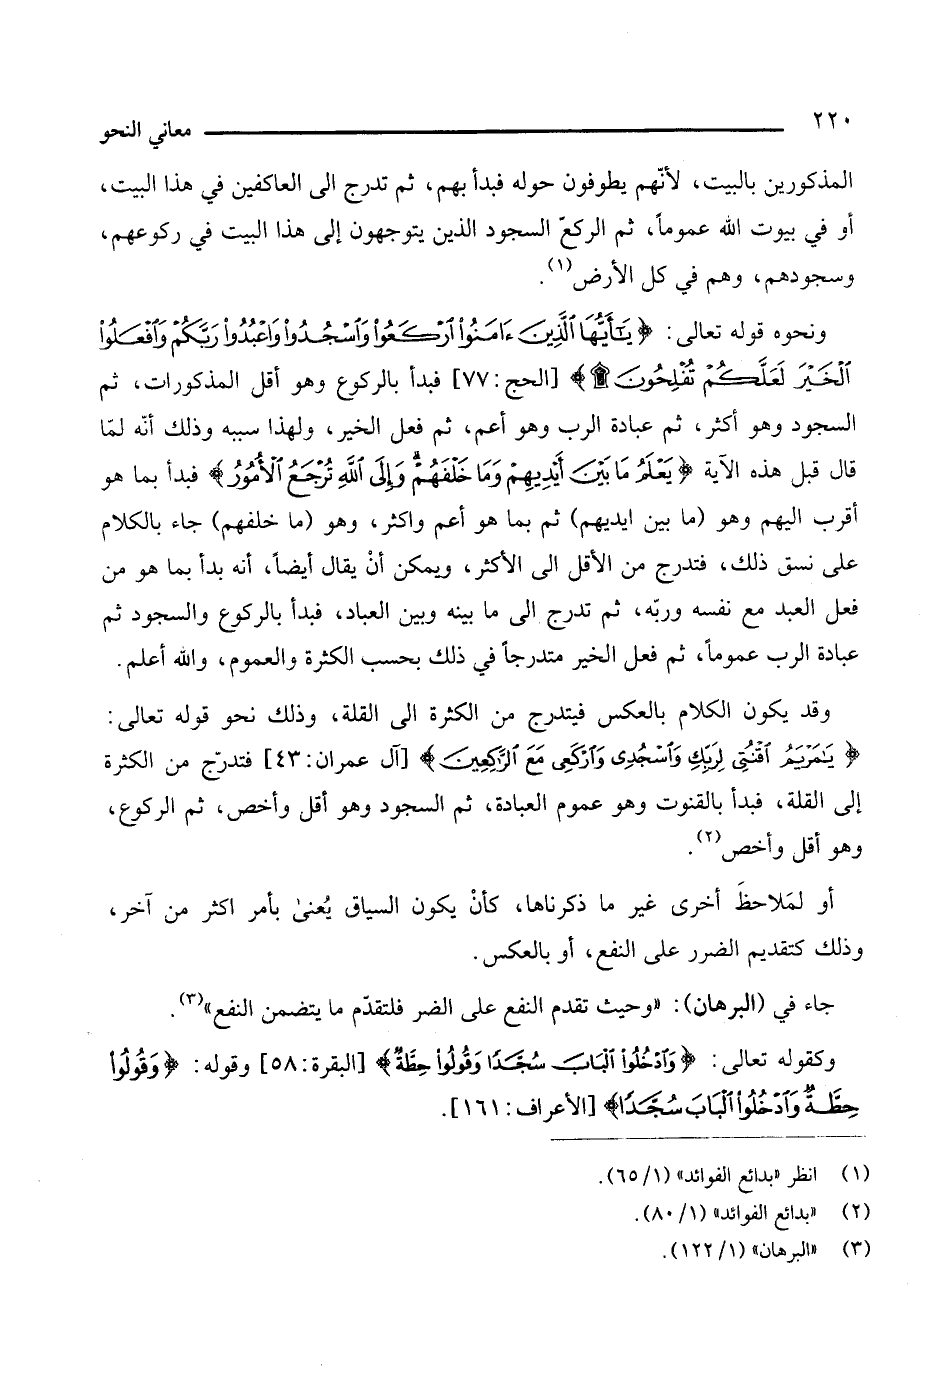 ٢٢٠ معاني النحو
المذكورين بالبيت، لأنّهم يطوفون حوله فبدأ بهم، ثم تدرج الى العاكفين في هذا البيت،
أو في بيوت الله عموماً، ثم الركعّ السجود الذين يتوجهون إلى هذا البيت في ركوعهم،
وسجودهم، وهم في كل الأرض(١).
ونحوه قوله تعالى: ﴿يَٰٓأَيُّهَا ٱلَّذِينَ ءَامَنُوا۟ ٱرْكَعُوا۟ وَٱسْجُدُوا۟ وَٱعْبُدُوا۟ رَبَّكُمْ وَٱفْعَلُوا۟
ٱلْخَيْرَ لَعَلَّكُمْ تُفْلِحُونَ ۩﴾ [الحج: ٧٧] فبدأ بالركوع وهو أقل المذكورات، ثم
السجود وهو أكثر، ثم عبادة الرب وهو أعم، ثم فعل الخير، ولهذا سببه وذلك أنّه لمّا
قال قبل هذه الآية ﴿يَعْلَمُ مَا بَيْنَ أَيْدِيهِمْ وَمَا خَلْفَهُمْ ۗ وَإِلَى ٱللَّهِ تُرْجَعُ ٱلْأُمُورُ﴾ فبدأ بما هو
أقرب اليهم وهو (ما بين ايديهم) ثم بما هو أعم واكثر، وهو (ما خلفهم) جاء بالكلام
على نسق ذلك، فتدرج من الأقل الى الأكثر، ويمكن أنْ يقال أيضاً، أنه بدأ بما هو من
فعل العبد مع نفسه وربّه، ثم تدرج الى ما بينه وبين العباد، فبدأ بالركوع والسجود ثم
عبادة الرب عموماً، ثم فعل الخير متدرجاً في ذلك بحسب الكثرة والعموم، والله أعلم.
وقد يكون الكلام بالعكس فيتدرج من الكثرة الى القلة، وذلك نحو قوله تعالى:
﴿يَٰمَرْيَمُ ٱقْنُتِى لِرَبِّكِ وَٱسْجُدِى وَٱرْكَعِى مَعَ ٱلرَّٰكِعِينَ﴾ [آل عمران: ٤٣] فتدرّج من الكثرة
إلى القلة، فبدأ بالقنوت وهو عموم العبادة، ثم السجود وهو أقل وأخص، ثم الركوع،
وهو أقل وأخص(٢).
أو لمَلاحظَ أخرى غير ما ذكرناها، كأنْ يكون السياق يُعنىٰ بأمر اكثر من آخر،
وذلك كتقديم الضرر على النفع، أو بالعكس.
جاء في (البرهان): «وحيث تقدم النفع على الضر فلتقدّم ما يتضمن النفع»(٣).
وكقوله تعالى: ﴿وَٱدْخُلُوا۟ ٱلْبَابَ سُجَّدًا وَقُولُوا۟ حِطَّةٌ﴾ [البقرة: ٥٨] وقوله: ﴿وَقُولُوا۟
حِطَّةٌ وَٱدْخُلُوا۟ ٱلْبَابَ سُجَّدًا﴾ [الأعراف: ١٦١].
(١) انظر «بدائع الفوائد» (١/ ٦٥).
(٢) «بدائع الفوائد» (١/ ٨٠).
(٣) «البرهان» (١/ ١٢٢).